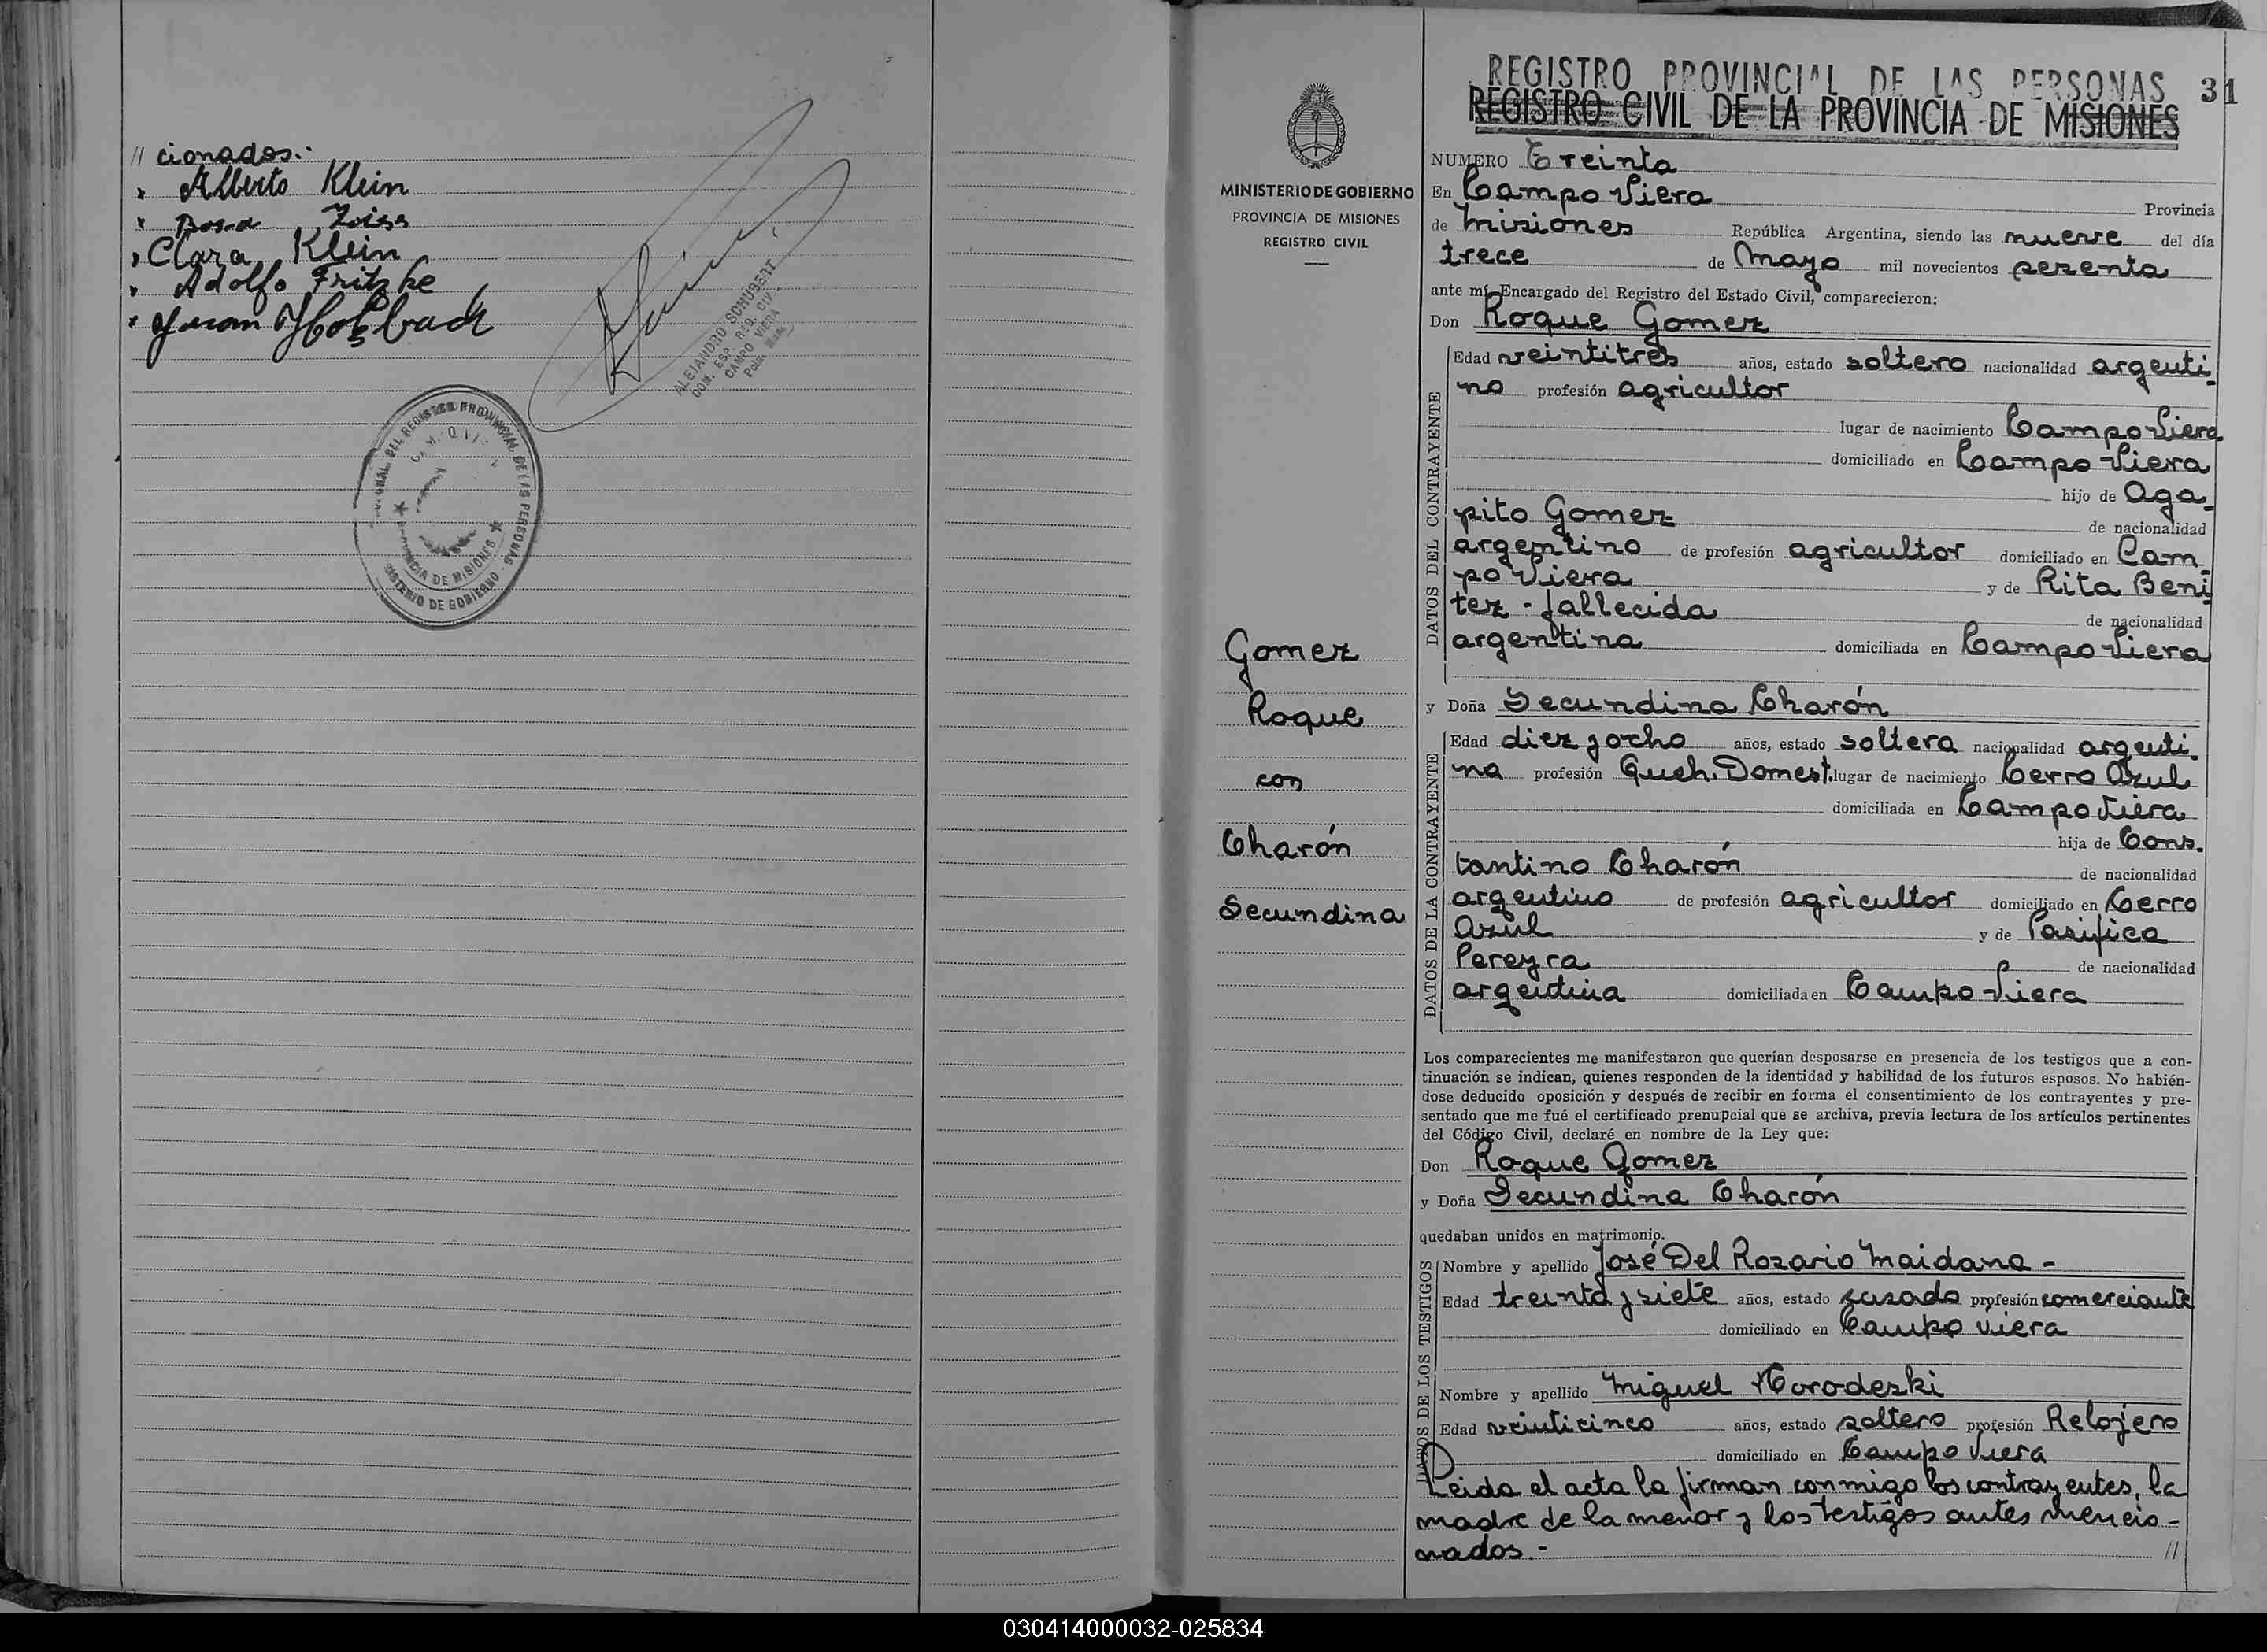 // cionados.-
Alberto Klein
Rosa Zviss
Clara Klein
Adolfo Fritzke
Juan Holsbach
ALEJANDRO SCHUBERT
COM. ESP. REG. CIV.
CAMPO VIERA
DEL REGISTRO PROVINCIAL DE LAS PERSONAS
PROVINCIA DE MISIONES
MINISTERIO DE GOBIERNO
MINISTERIO DE GOBIERNO
PROVINCIA DE MISIONES
REGISTRO CIVIL
Gomez
Roque
con
Charón
Secundina
REGISTRO PROVINCIAL DE LAS PERSONAS 31
REGISTRO CIVIL DE LA PROVINCIA DE MISIONES
NUMERO Treinta
En Campo Viera Provincia
de Misiones República Argentina, siendo las nueve del día
trece de Mayo mil novecientos sesenta
ante mí, Encargado del Registro del Estado Civil, comparecieron:
Don Roque Gomez
DATOS DEL CONTRAYENTE
Edad veintitres años, estado soltero nacionalidad argenti-
no profesión agricultor
lugar de nacimiento Campo Viera
domiciliado en Campo Viera
hijo de Aga-
pito Gomez de nacionalidad
argentino de profesión agricultor domiciliado en Cam-
po Viera y de Rita Beni
tez - fallecida de nacionalidad
argentina domiciliada en Campo Viera
y Doña Secundina Charón
DATOS DE LA CONTRAYENTE
Edad diez y ocho años, estado soltera nacionalidad argenti-
na profesión Queh. Domest. lugar de nacimiento Cerro Azul
domiciliada en Campo Viera
hija de Cons-
tantino Charón de nacionalidad
argentino de profesión agricultor domiciliado en Cerro
Azul y de Pasifica
Pereyra de nacionalidad
argentina domiciliada en Campo Viera
Los comparecientes me manifestaron que querían desposarse en presencia de los testigos que a con-
tinuación se indican, quienes responden de la identidad y habilidad de los futuros esposos. No habién-
dose deducido oposición y después de recibir en forma el consentimiento de los contrayentes y pre-
sentado que me fué el certificado prenupcial que se archiva, previa lectura de los artículos pertinentes
del Código Civil, declaré en nombre de la Ley que:
Don Roque Gomez
y Doña Secundina Charón
quedaban unidos en matrimonio.
DATOS DE LOS TESTIGOS
Nombre y apellido José Del Rosario Maidana -
Edad treinta y siete años, estado casado profesión comerciante
domiciliado en Campo Viera
Nombre y apellido Miguel Horodeski
Edad veinticinco años, estado soltero profesión Relojero
domiciliado en Campo Viera
Leida el acta la firman conmigo los contrayentes, la
madre de la menor y los testigos antes mencio-
nados.- //
030414000032-025834